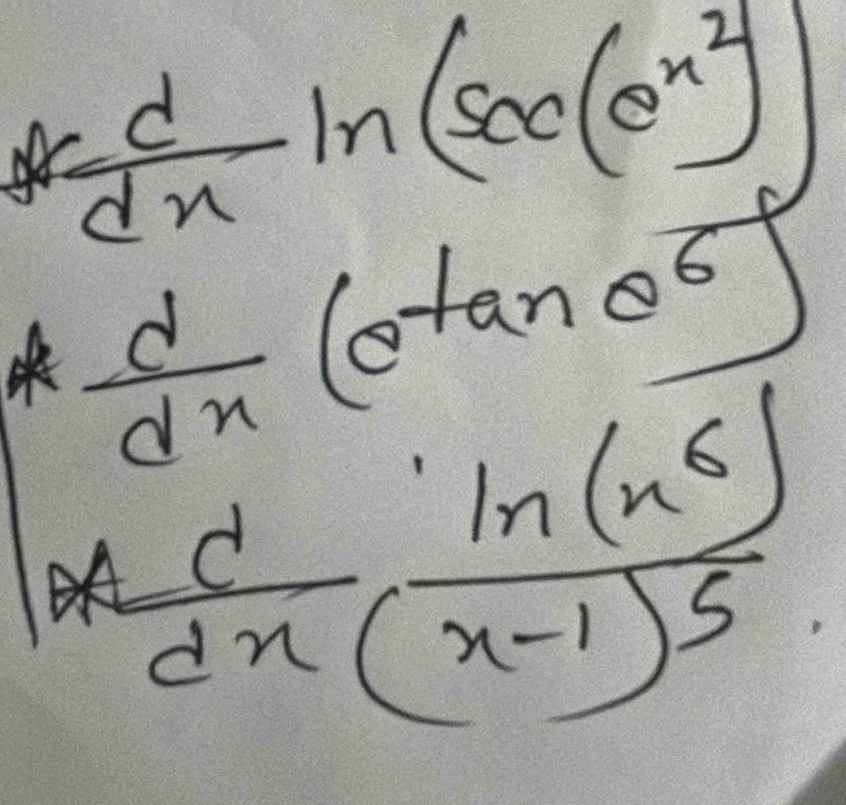 * d/dx ln(sec(e^x^2))
* d/dx (e^tan e^6)
* d/dx ln(x^6)/(x-1)^5.